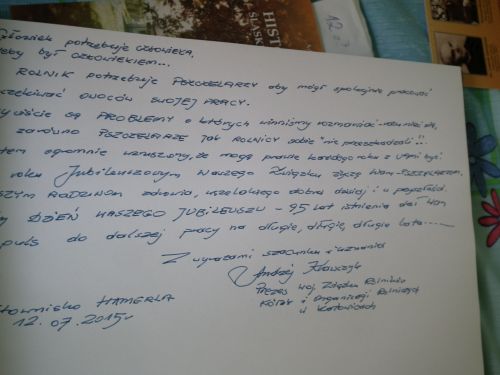 HIST
ŚLĄSK
Człowiek potrzebuje człowieka,
żeby być człowiekiem...
ROLNIK potrzebuje PSZCZELARZY aby mógł spokojnie pracować
oczekiwać owoców swojej pracy.
są PROBLEMY o których winniśmy rozmawiać
zarówno PSZCZELARZE jak ROLNICY sobie "nie przeszkadzali"!
ogromnie wzruszony, że mogę prawie każdego roku z Wami być
roku Jubileuszowym Waszego Związku życzę Wam - PSZCZELARZOM,
RODZINOM zdrowia, wszelakiego dobra dzisiaj i w przyszłości
DZIEŃ WASZEGO JUBILEUSZU - 95 lat istnienia da Wam
impuls do dalszej pracy na długie, długie, długie lata.......
Z wyrazami szacunku i uznania
Andrzej Krawczyk
Prezes Woj. Związku Rolników
Kółek i Organizacji Rolniczych
w Katowicach
HAMERLA
12.07.2015r